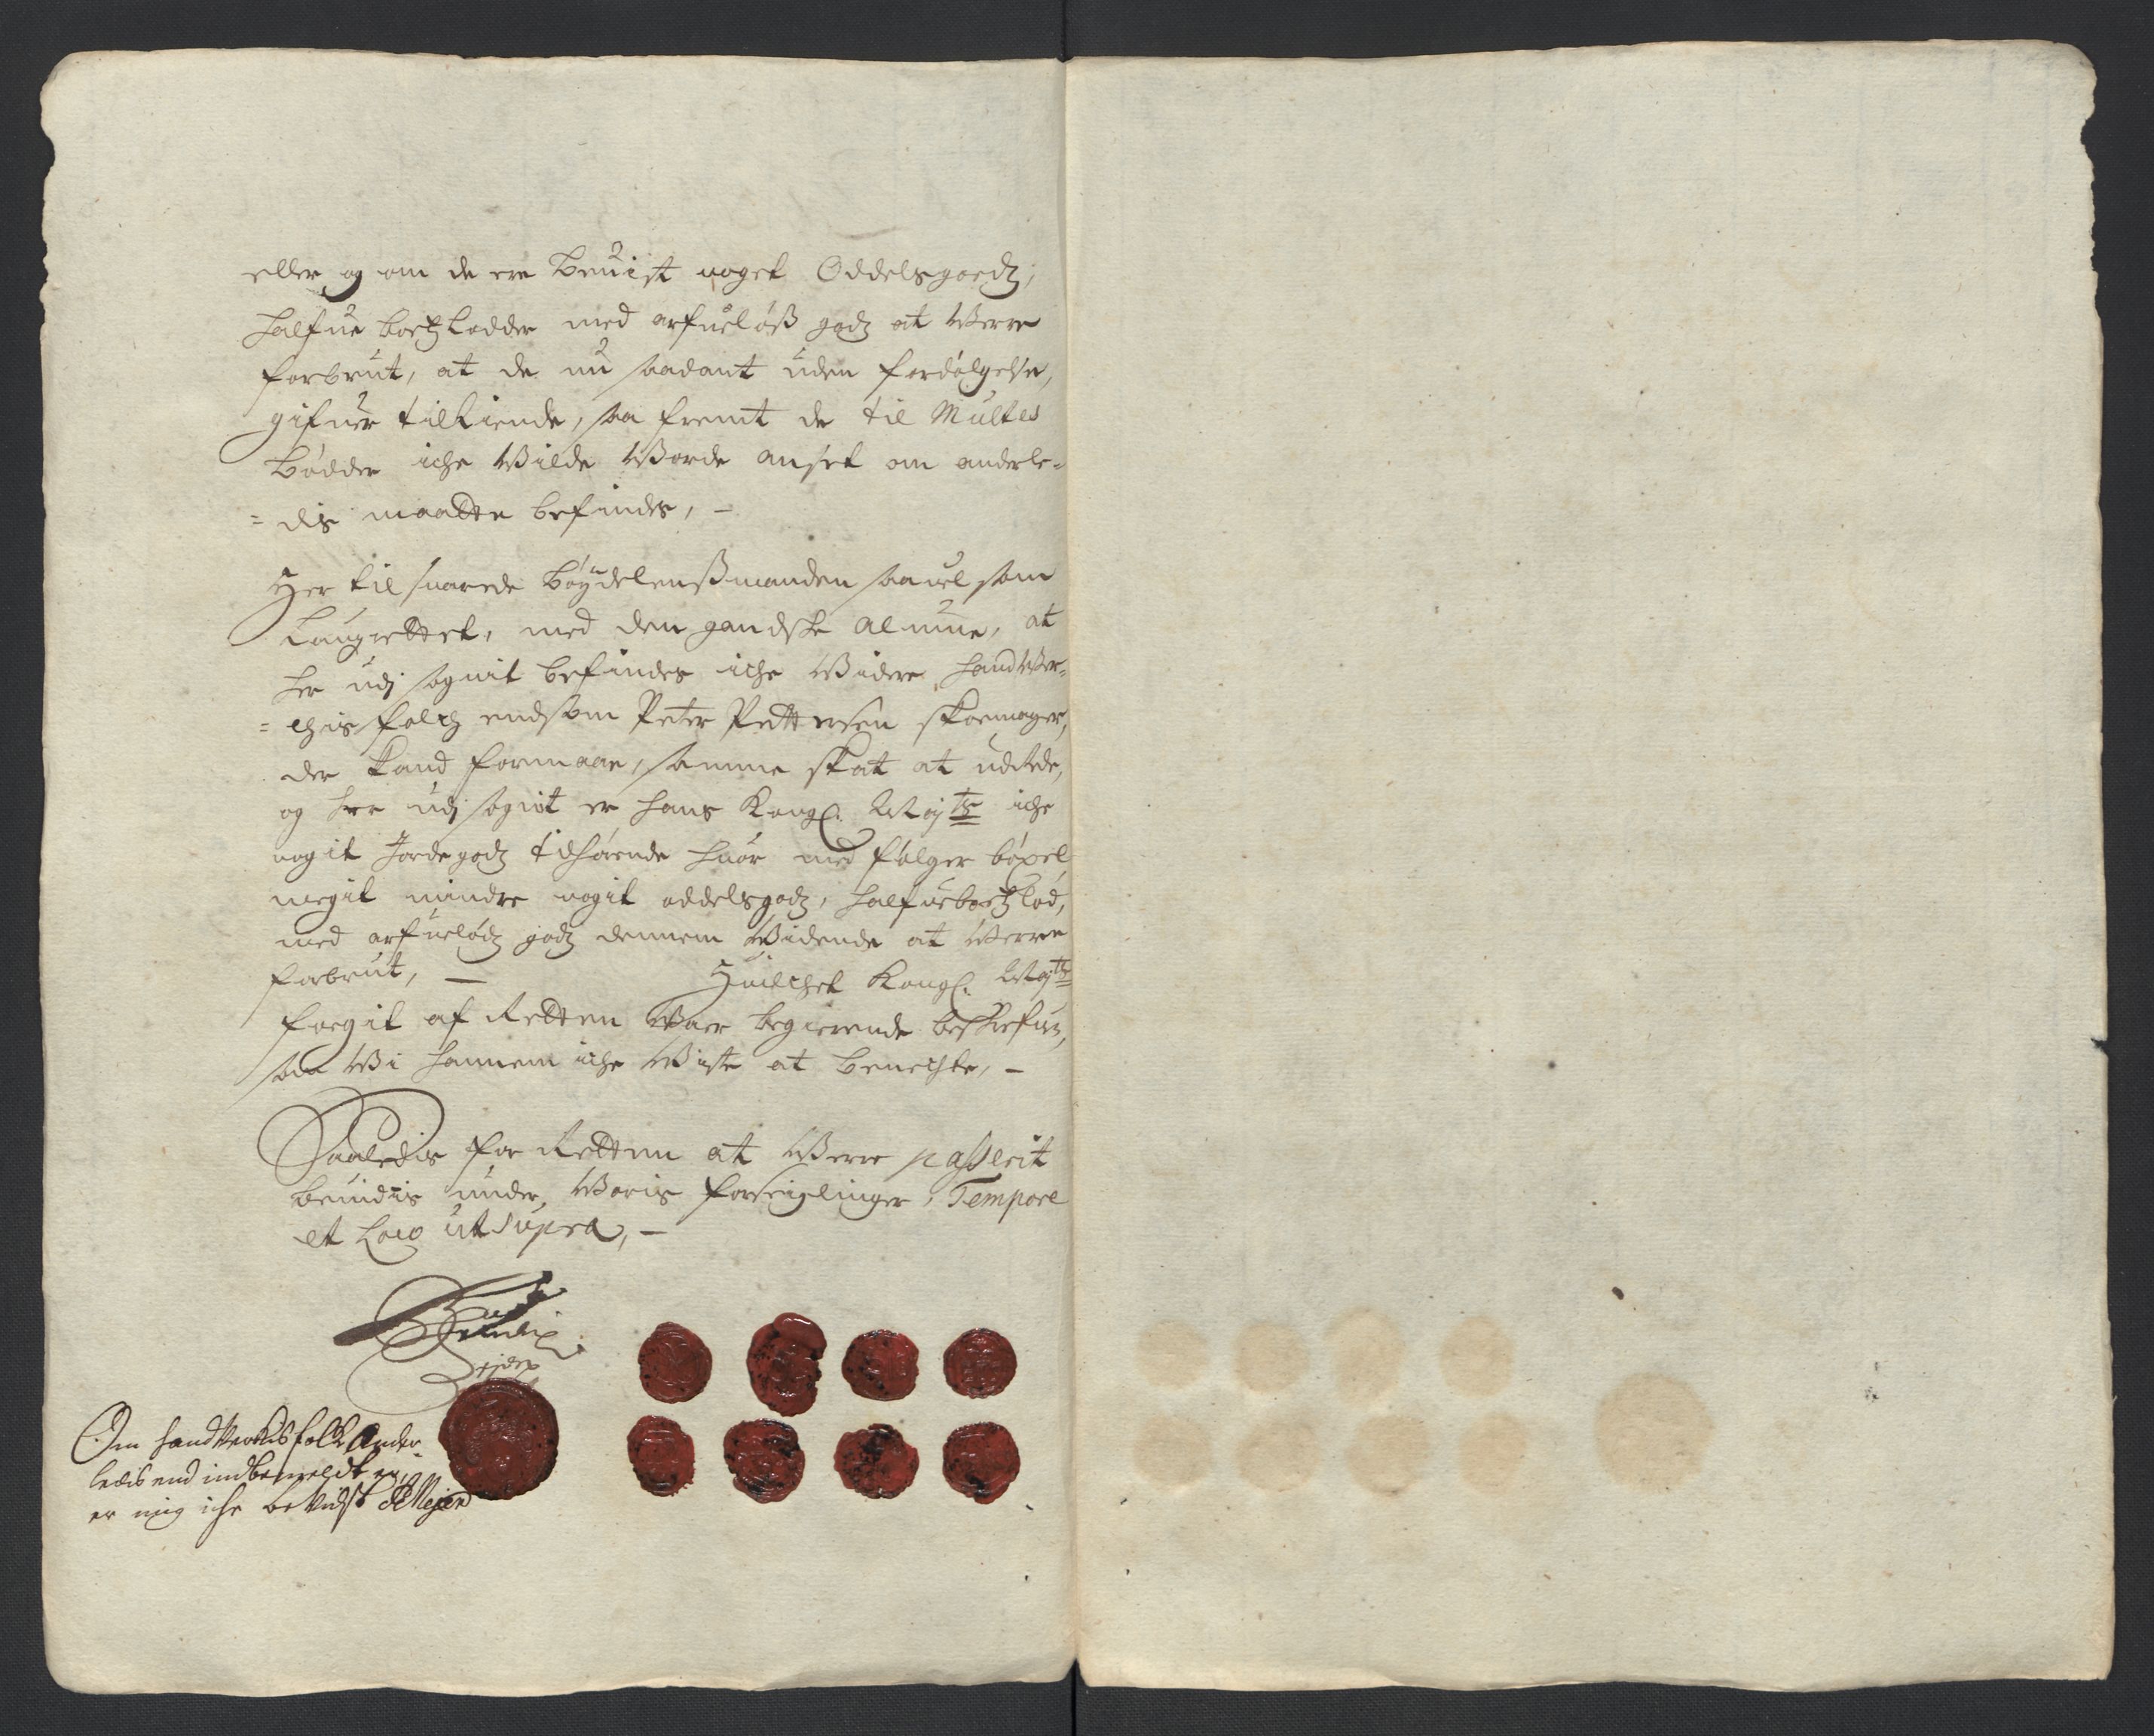 eller og om de ere beuist noget Oddelsgoedz,
halfue boetzlodder med arfueløß godz at Werre
forbrut, at de nu saadant uden fordølgelse,
gifuer tilkiende, saa fremt de til Multes
bødder iche Wilde Worde anset om anderle-
= dis maatte befindes, -
Her til suarede bøydelenßmanden saauel som
Laugrettet, med den gandske almue, at
her udj sognit befindes iche Widere handWer-
= chis folch endsom Peter Pettersen skoemager,
der kand formaae, samme skat at udrede,
og her udj sognit er hans Kongl. Mayts iche
nogit Jordegodz tilhørende huor med følger bøxel
megit mindre nogit oddelsgodz, halfueboetzlod,
med arfuelødz godz dennem Widende at Werre
forbrut, — Huilchet Kongl. Mayts
foegit af Retten Waar begierende beskrefuen,
som Wi hannem iche Wiste at benechte, -
Saaledis for Retten at Werre passerit
beuidnis under Woris forseiglinger, Tempore
et Loco ut supra, -
Om handverchsfolk Ander
ledis end indbemeldt er,
er mig iche beVidst